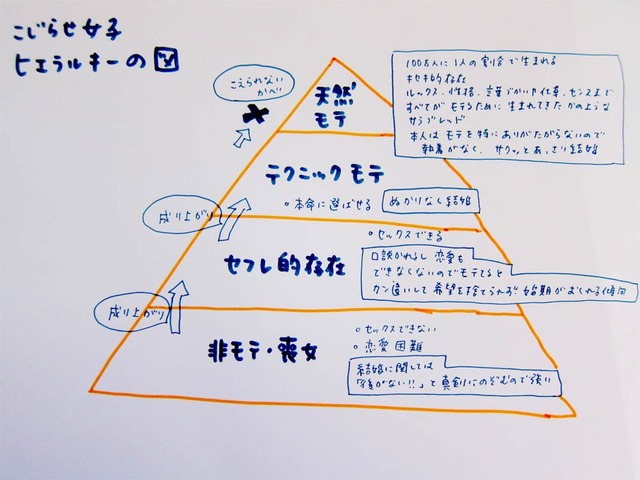 こじらせ女子
ヒエラルキーの図
こえられない
かべ
天然
モテ
100万人に1人の割合で生まれる
キセキ的存在
ルックス、性格、言葉づかいや仕草、センスまで
すべてが モテるために 生まれてきた かのような
サラブレッド
本人は モテを特にありがたがらないので
執着がなく、サクッとあっさり結婚
テクニック モテ
本命に選ばせる
ぬかりなく結婚
成り上がり
セックスできる
セフレ的存在
口説かれるし 恋愛も
できなくないのでモテてると
カン違いして 希望を捨てられず 婚期がおくれる傾向
成り上がり
非モテ・喪女
セックスできない
恋愛 困難
結婚に関しては
「後がない!!」と 真剣にのぞむので強い